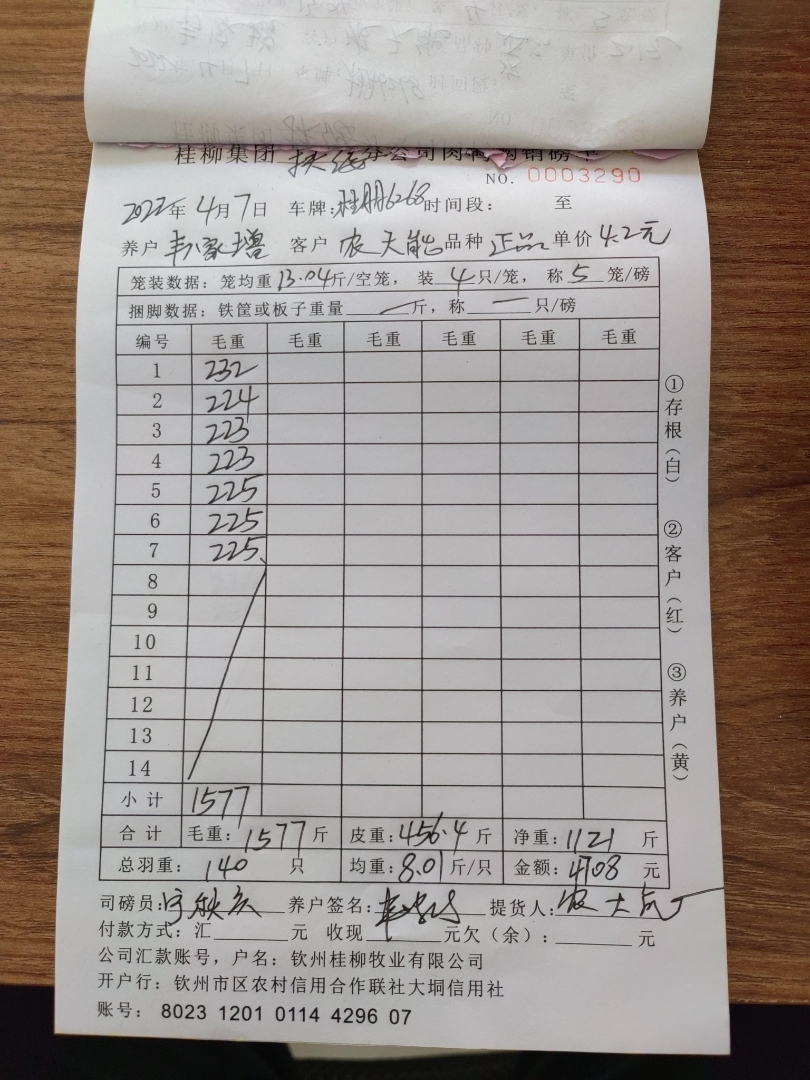 桂柳集团 扶绥分公司肉鸭购销磅单
NO. 0003290
2022年 4月7日 车牌:桂 6268 时间段: 至
养户 韦家增 客户 农天能 品种 正品 单价 4.2元
笼装数据: 笼均重13.04斤/空笼, 装 4 只/笼, 称 5 笼/磅
捆脚数据: 铁筐或板子重量 — 斤, 称 — 只/磅
编号 毛重 毛重 毛重 毛重 毛重 毛重
1 232
2 224
3 223
4 223
5 225
6 225
7 225
8
9
10
11
12
13
14
小计 1577
合计 毛重: 1577斤 皮重: 456.4斤 净重: 1121斤
总羽重: 140 只 均重: 8.01斤/只 金额: 4708元
司磅员: 养户签名: 提货人:
付款方式: 汇 元 收现 元欠(余): 元
公司汇款账号, 户名: 钦州桂柳牧业有限公司
开户行: 钦州市区农村信用合作联社大垌信用社
账号: 8023 1201 0114 4296 07
①存根(白)
②客户(红)
③养户(黄)